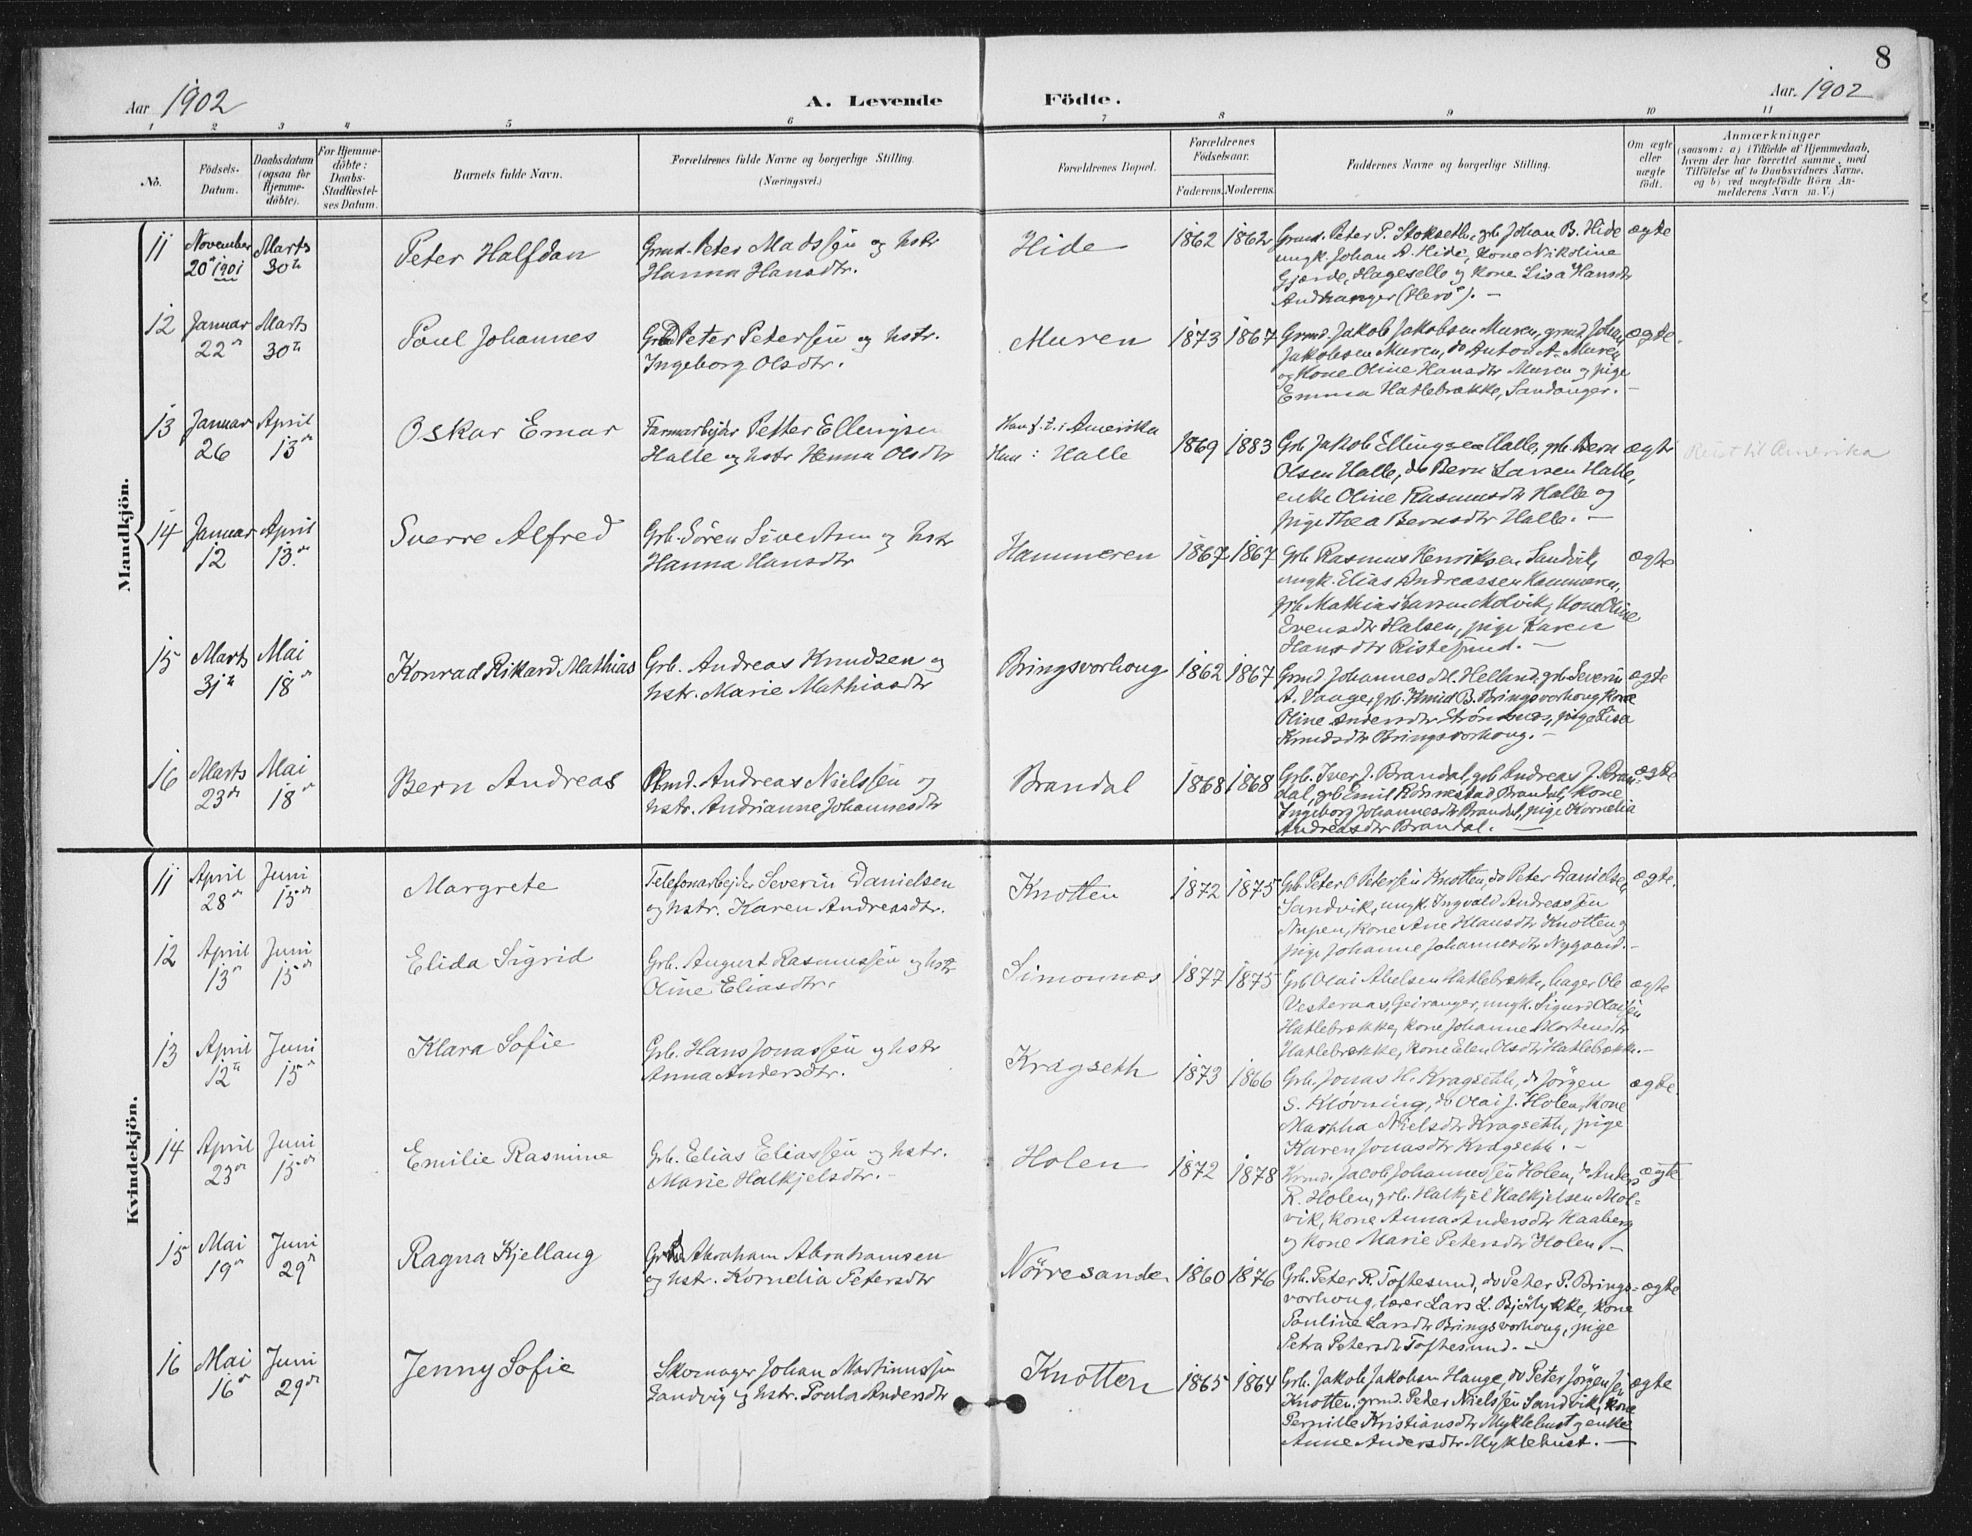 8
Aar 1902
A. Levende
Födte.
Aar. 1902
1 2 3 4 5 6 7 8 9 10 11
No.
Födsels-
Datum.
Daabsdatum
(ogsaa for
Hjemme-
döbte).
For Hjemme-
döbte:
Daabs-
Stadfæstel-
ses Datum.
Barnets fulde Navn.
Forældrenes fulde Navne og borgerlige Stilling.
(Næringsvei.)
Forældrenes Bopæl.
Forældrenes
Födselsaar.
Faderens.
Moderens.
Faddernes Navne og borgerlige Stilling.
Om ægte
eller
uægte
födt.
Anmærkninger
(saasom: a) i Tilfælde af Hjemmedaab,
hvem der har forrettet samme, med
Tilföielse af to Daabsvidners Navne.
og b) ved uægtefödte Börn An-
melderens Navn m. V.)
Mandkjön.
11
November
20 1901
Marts
30te
Peter Halfdan
Grmd. Peter Madssen og hstr
Hanna Hansdtr.
Hide
1862 1862
Grmd. Peter P. Stokseth, grb Johan B. Hide
ungk. Johan A. Hide, kone Nikoline
Gjerde, Hageselle og kone Lisa Hansdtr
Andhanger (Herö). -
ægte
12
Januar
22de
Marts
30te
Poul Johannes
Peter Peterssen og hstr.
Ingeborg Olsdtr.
Muren
1873 1867
Grmd. Jakob Jakobsen Muren, grmd. Johan
Jakobsen Muren, do Anton A. Muren
og kone Oline Hansdtr Muren og pige
Emma Hatlebrække, Sandanger. -
ægte.
13
Januar
26
April
13de
Oskar Emar
Farmarbejdr Petter Ellingsen
Halle og hstr Hanna Olsdtr
Han f. t. i Amerika
Hun i Halle
1869 1883
Grb. Jakob Ellingsen Halle, grb. Bern
Olsen Halle, do Bern Larsen Halle,
enke Oline Rasmusdtr Halle og
pige Thea Bernsdtr Halle. -
ægte
Reist til Amerika
14
Januar
12
April
13de
Sverre Alfred
Grb. Sören Sivertsen og hstr
Hanna Hansdtr
Hammeren
1867 1867
Grb. Rasmus Henriksen Sandvik,
ungk. Elias Andreassen Hammeren,
grb. Mathias Larsen Molvik, kone Oline
Evensdtr Halsen, pige Karen
Hansdtr Ristesund. -
ægte
15
Marts
31te
Mai
18de
Konrad Rikard Mathias
Grb. Andreas Knudsen og
hstr. Marie Mathiasdtr
Bringsvorhoug
1862 1867
Grmd. Johannes M. Helland, grb. Severin
A. Vaage, grb. Knud B. Bringsvorhoug, kone
Oline Andersdtr Strömnes, pige Lisa
Knudsdtr Bringsvorhoug. -
ægte
16
Marts
23de
Mai
18de
Bern Andreas
Andreas Nielssen og
hstr. Andrianne Johannesdtr
Brandal
1868 1868
Grb. Iver J. Brandal, grb Andreas J. Bran-
dal, grb Emil Rönnestad Brandal, kone
Ingeborg Johannesdtr Brandal, pige Kornelia
Andreasdtr Brandal. -
ægte
Kvindekjön.
11
April
28de
Juni
15de
Margrete
Telefonarbejder Severin Danielsen
og hstr. Karen Andreasdtr.
Knotten
1872 1875
Grb Peter O Peterssen Knotten, do Peter Danielsen
Sandvik, ungk. Ingvald Andreassen
Nupen, kone Ane Klausdtr Knotten og
pige Johanne Johannesdtr Nygaard. -
ægte.
12
April
13de
Juni
15de
Elida Sigrid
Grb. August Rasmussen og hstr
Oline Eliasdtr.
Simonnæs
1877 1875
Grb Olai Abelsen Hatlebrække, bager Ole
Vesteraas Geiranger, ungk. Sigurd Olaisen
Hatlebrække, kone Johanne Mortensdtr
Hatlebrække, kone Elen Olsdtr Hatlebrække. -
ægte
13
April
12te
Juni
15de
Klara Sofie
Grb. Hans Jonassen og hstr
Anna Andersdtr.
Kragseth
1873 1866
Grb. Jonas H. Kragseth, do Jörgen
S. Klövning, do Olai J. Holen, kone
Martha Nielsdtr Kragseth, pige
Karen Jonasdtr Kragseth. -
ægte
14
April
23de
Juni
15de
Emilie Rasmine
Grb. Elias Eliassen og hstr.
Marie Halkjelsdtr. -
Holen
1872 1878
Grmd. Jacob Johannessen Holen, do Anders
R. Holen, grb. Halkjel Halkjelsen Mol-
vik, kone Anna Andersdtr Haaberg
og kone Marie Petersdtr Holen. -
ægte
15
Mai
19de
Juni
29de
Ragna Kjellaug
Abraham Abrahamsen
og hstr. Kornelia Petersdtr
Nörresande
1860 1876
Grb. Peter R. Toftesund, do Peter P. Brings-
vorhoug, lærer Lars L. Bjørlykke, kone
Pauline Larsdtr Bringsvorhoug, pige
Petra Petersdtr Toftesund. -
ægte
16
Mai
16de
Juni
29de
Jenny Sofie
Skomager Johan Martinussen
Sandvig og hstr. Poula Andersdtr
Knotten
1865 1864
Grb. Jakob Jakobsen Hauge, do Peter Jörgensen
Knotten, grmd. Peder Nielssen Sandvik, kone
Pernille Kristiansdtr Myklebust og enke
Anne Andersdtr Myklebust. -
ægte